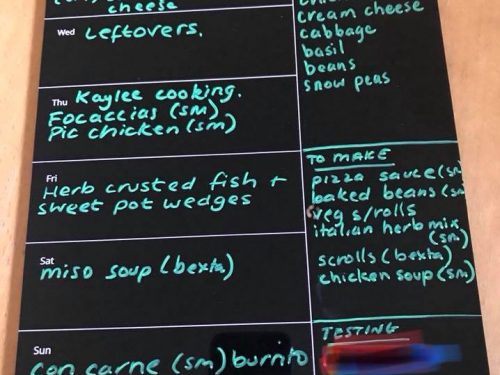 cheese
Wed Leftovers.
Thu Kaylee cooking.
Focaccias (sm)
Pic chicken (sm)
Fri
Herb crusted fish +
sweet pot wedges
Sat
miso soup (bexta)
Sun
con carne (sm) burrito
cream cheese
cabbage
basil
beans
snow peas
TO MAKE
pizza sauce (sm
baked beans (sm
veg s/rolls
italian herb mix
(sm)
scrolls (bexta)
chicken soup (sm)
TESTING